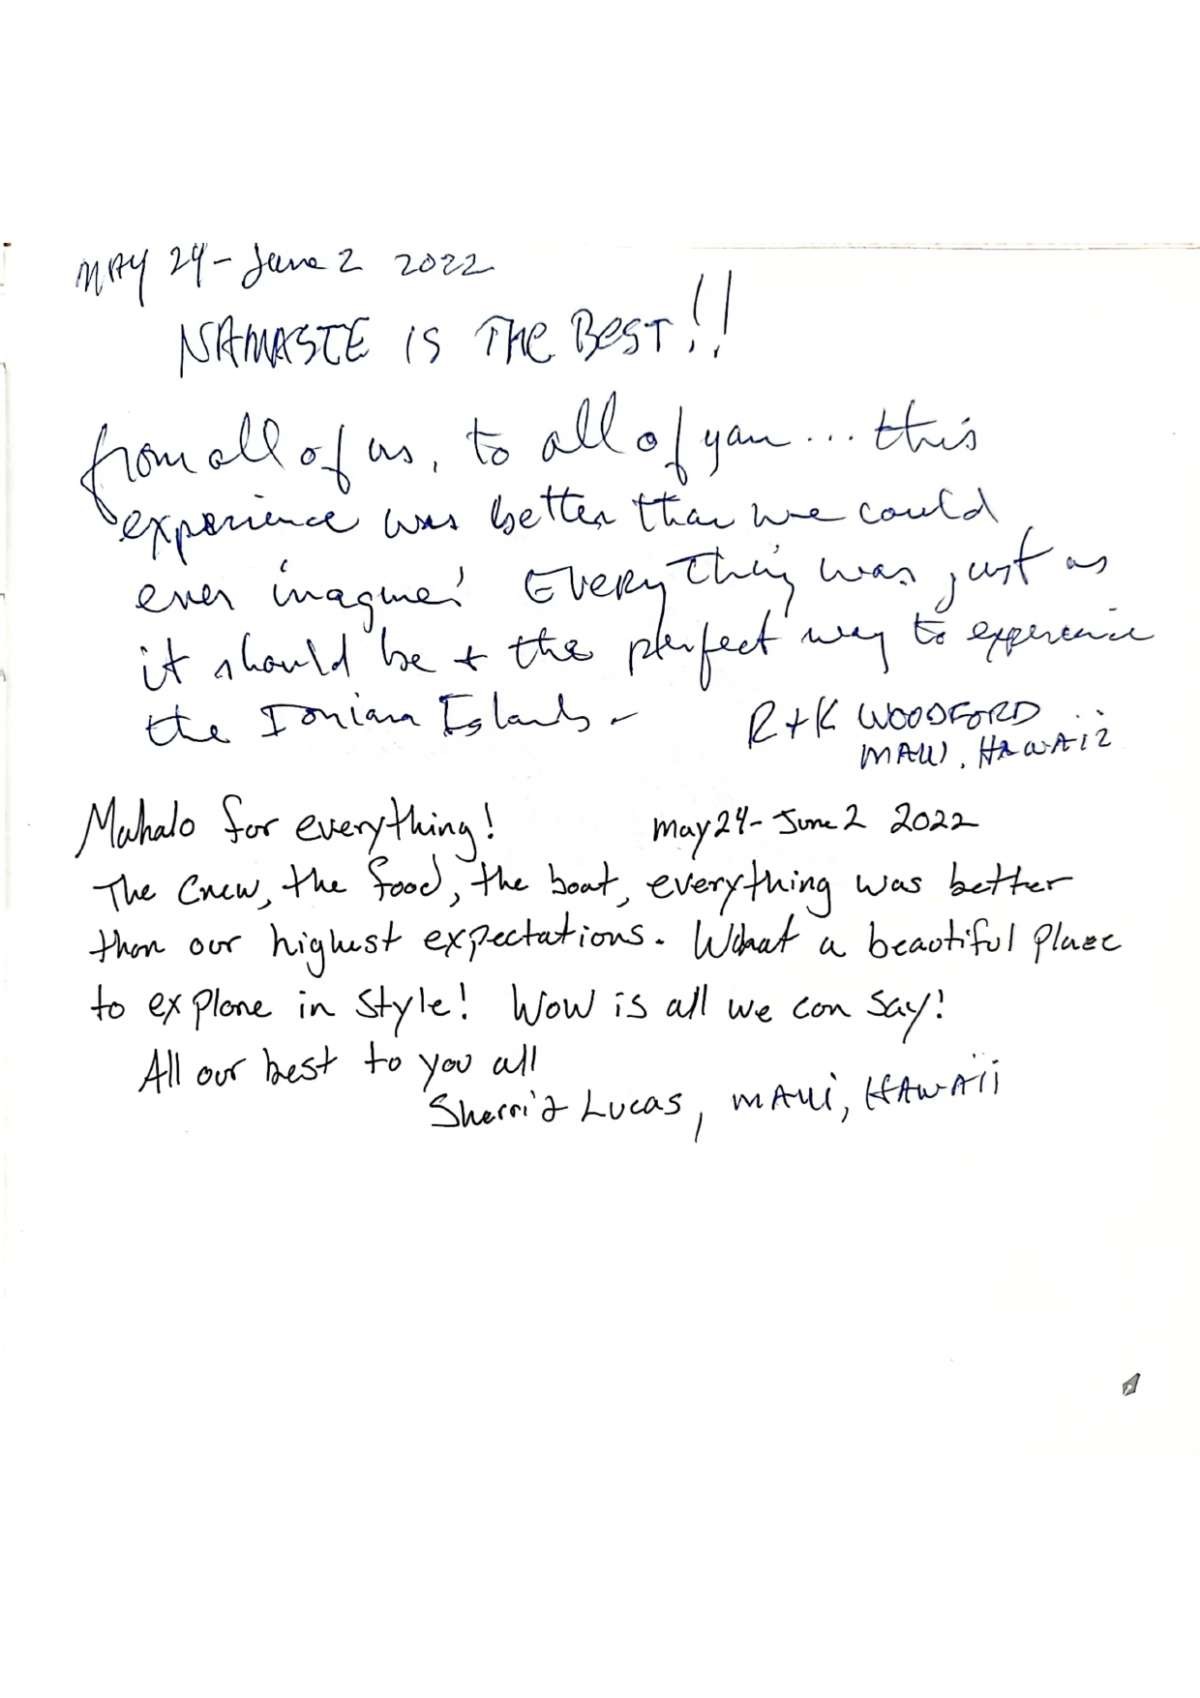 MAY 24 - June 2 2022
NAMASTE IS THE BEST!!
from all of us, to all of you ... this
experience was better than we could
ever imagine! Everything was just as
it should be + the perfect way to experience
the Ionian Islands -
R + K WOODFORD
MAUI, HAWAII
Mahalo for everything!
May 24 - June 2 2022
The Crew, the food, the boat, everything was better
than our highest expectations. What a beautiful place
to explore in style! Wow is all we can say!
All our best to you all
Sherri & Lucas, MAUI, HAWAII